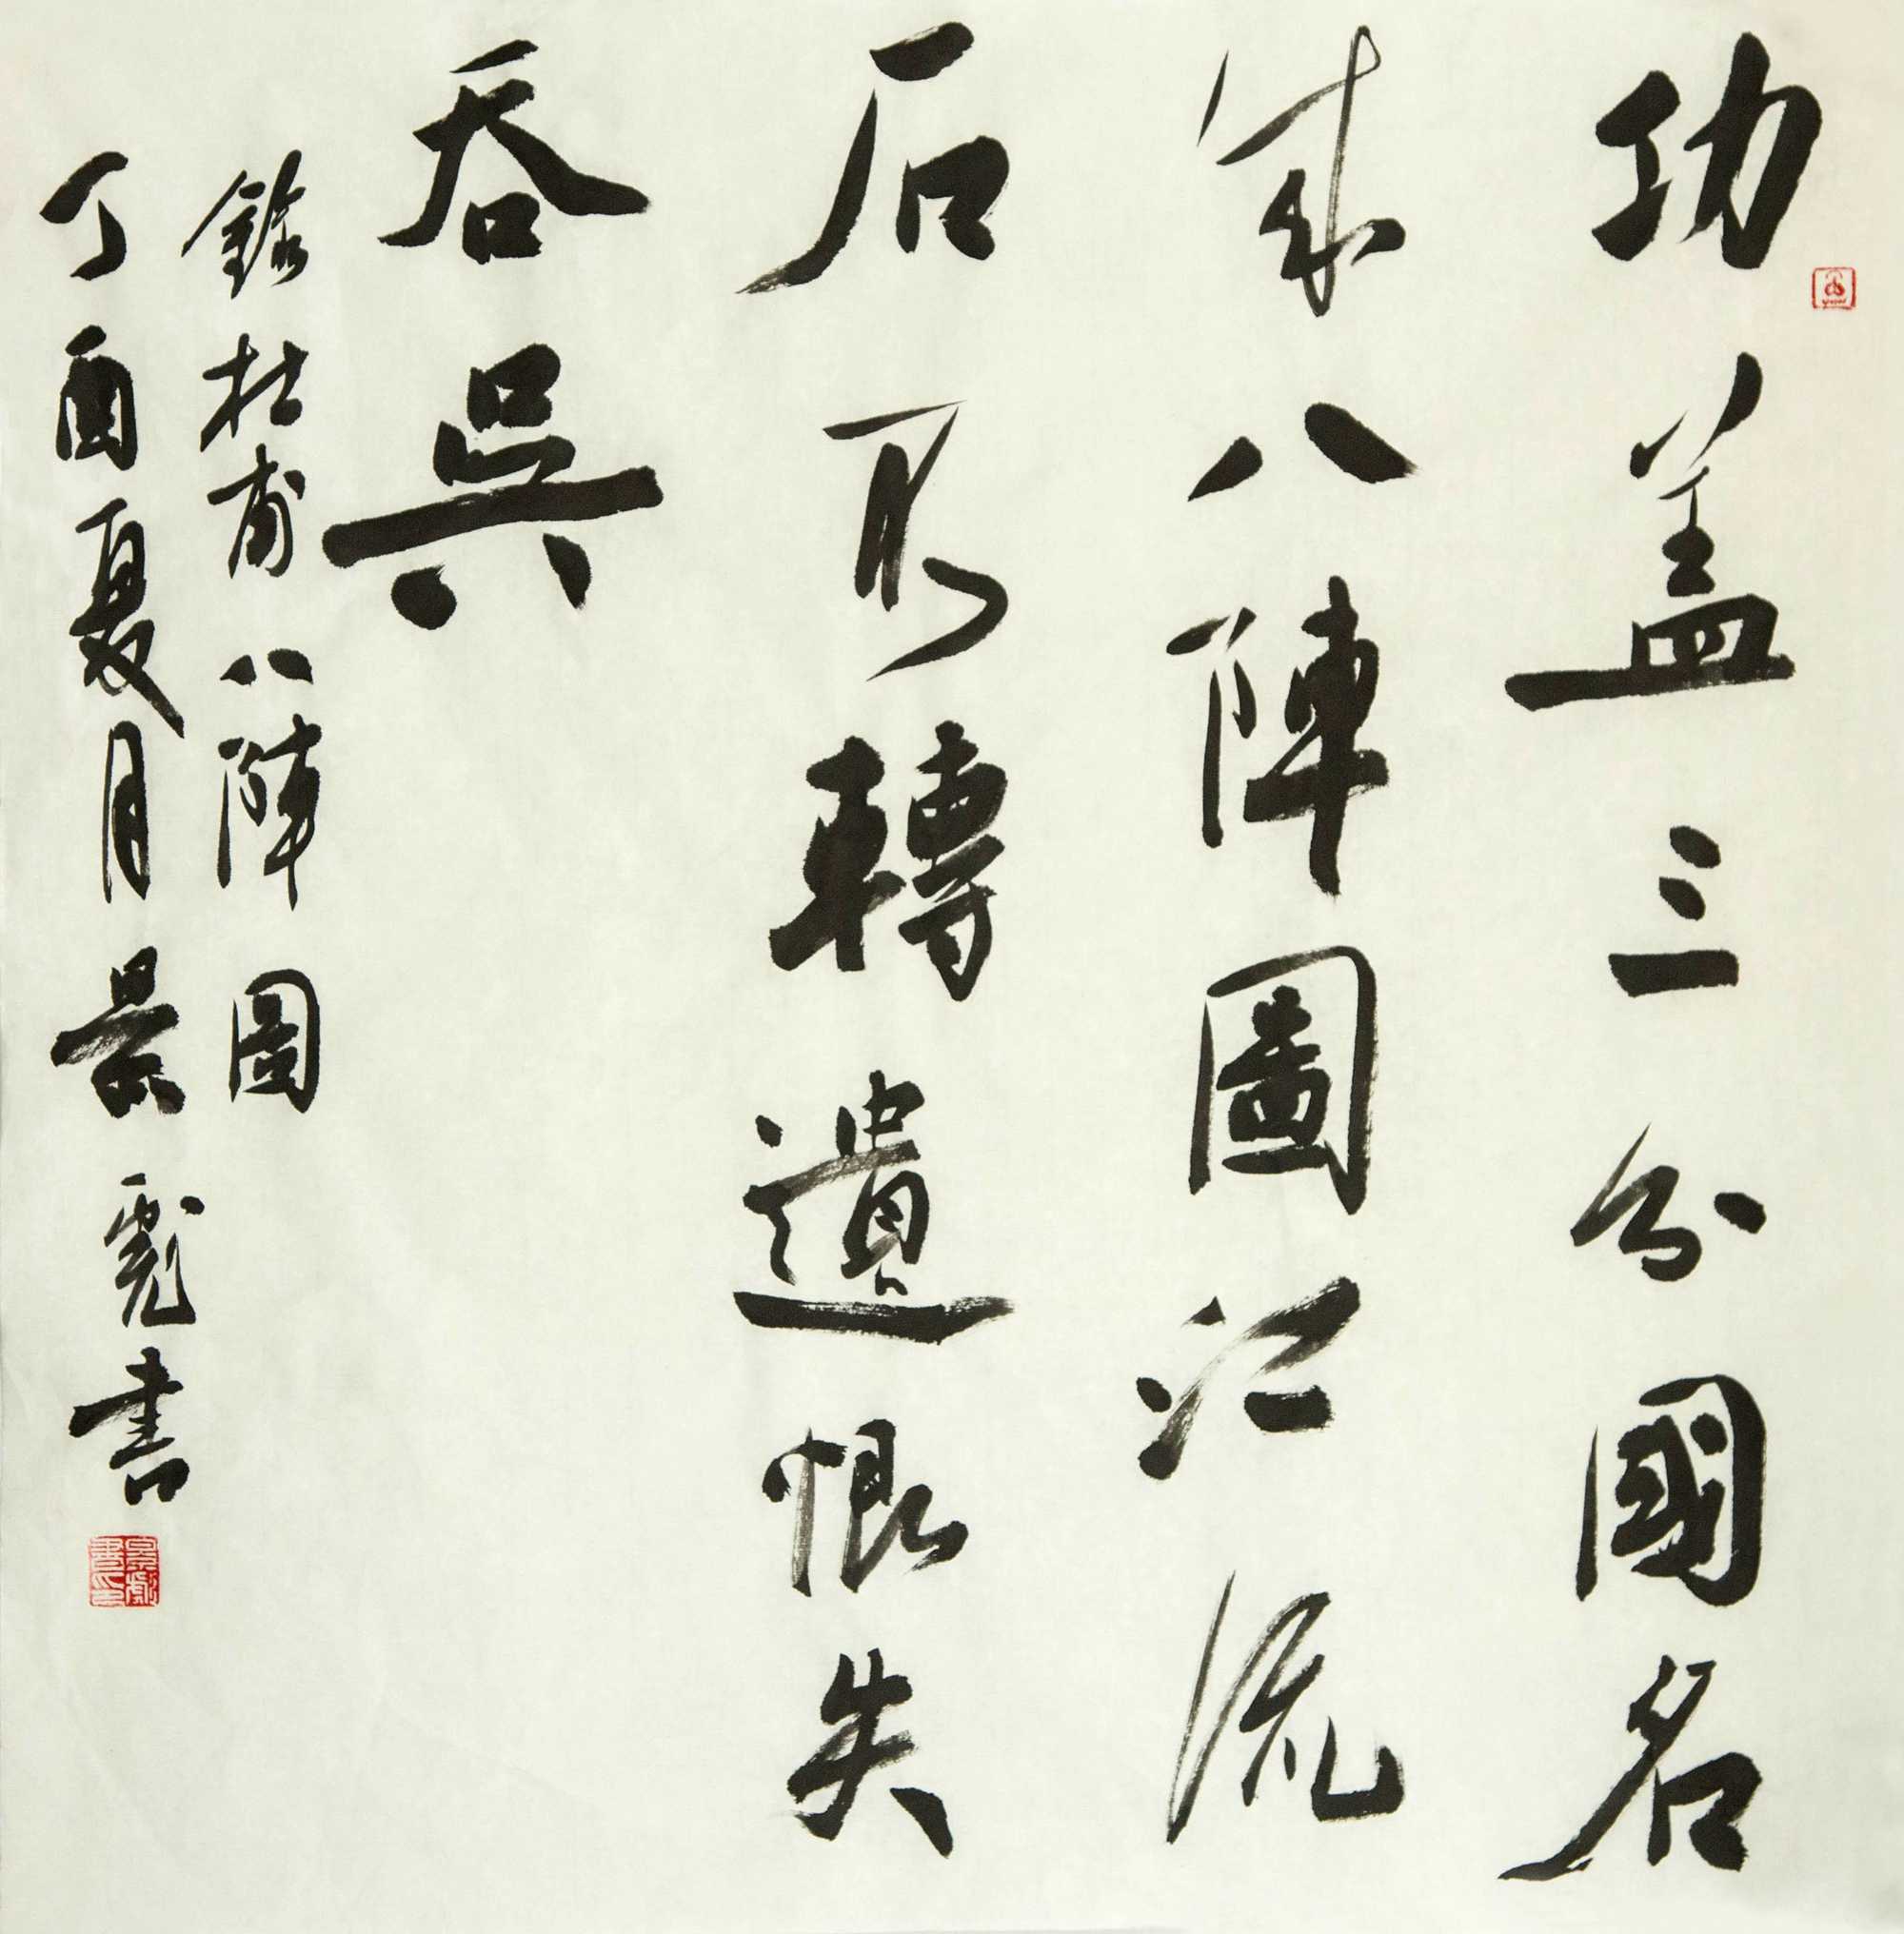 功盖三分國名
成八陣圖江流
石不轉遺恨失
吞吳
錄杜甫八陣圖
丁酉夏月景書